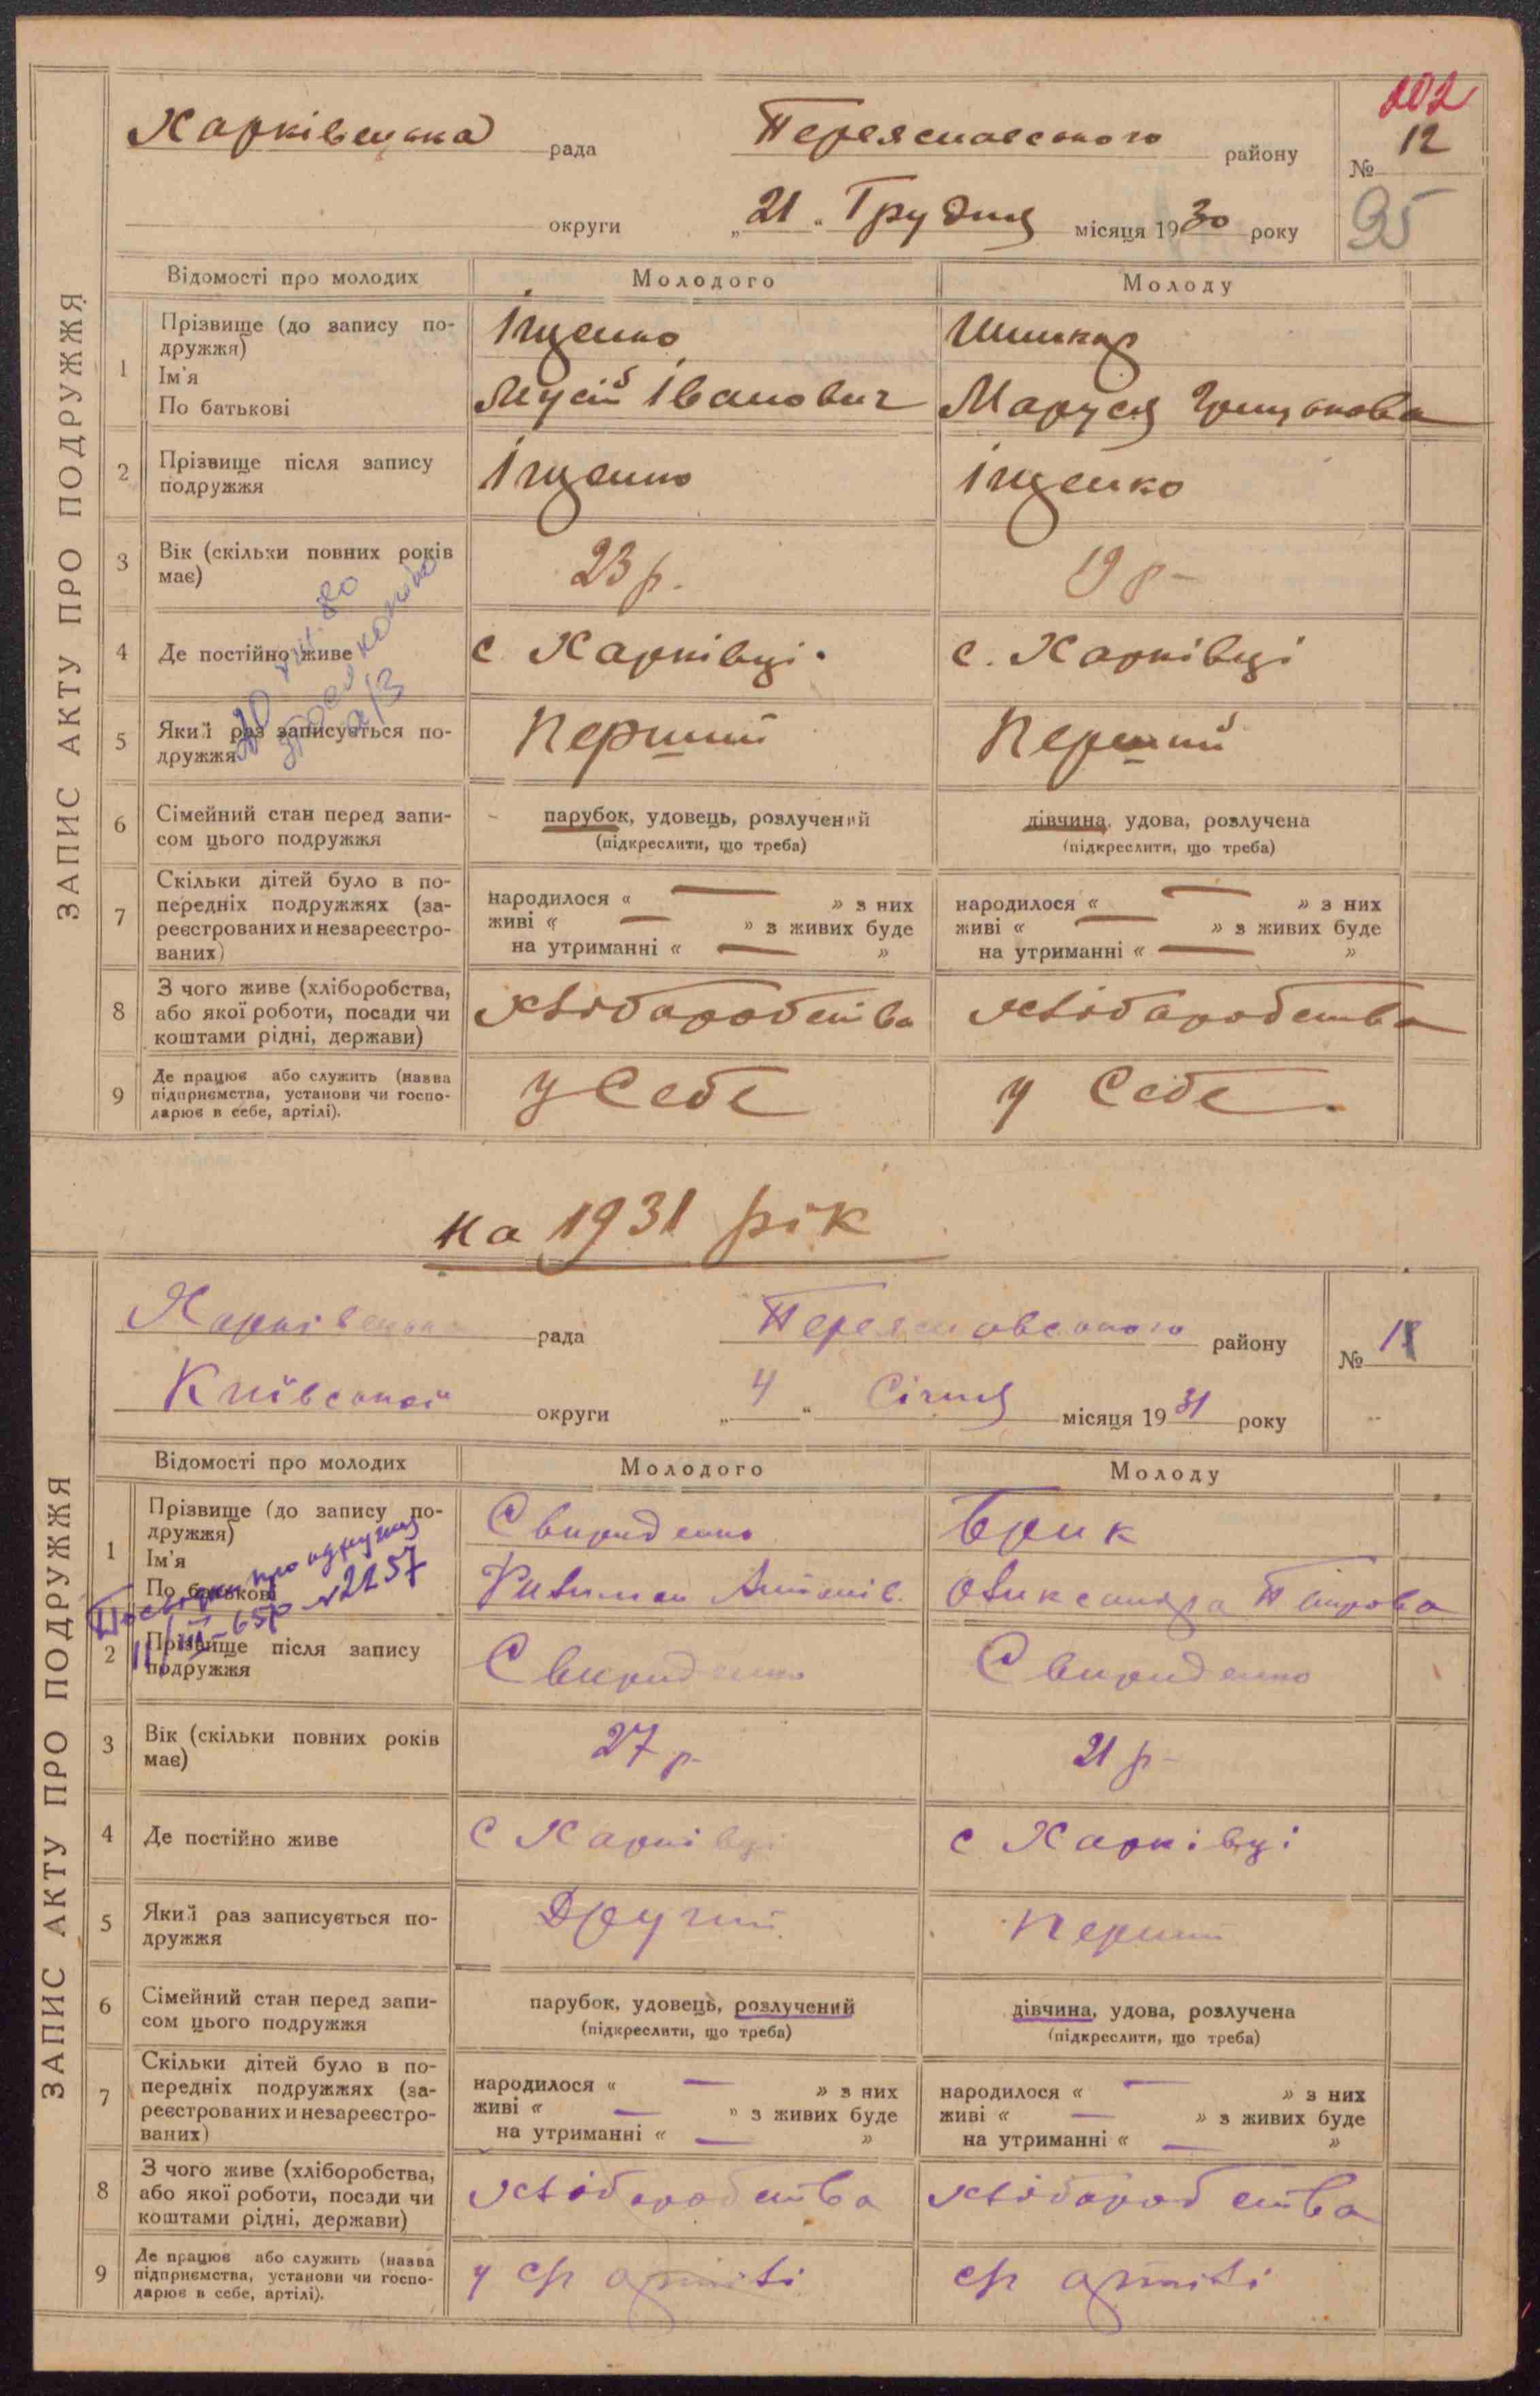 202
Харківецька рада Переяславського району № 12
округи „21“ Грудня місяця 1930 року 95
ЗАПИС АКТУ ПРО ПОДРУЖЖЯ
Відомості про молодих Молодого Молоду
1 Прізвище (до запису по-
дружжя)
Ім'я
По батькові
Іщенко Шинкар
Мусій Іванович Маруся
2 Прізвище після запису
подружжя
Іщенко Іщенко
3 Вік (скільки повних років
має)
23 р. 19 р
4 Де постійно живе
с Харківці с. Харківці
5 Який раз записується по-
дружжя
Перший Перший
6 Сімейний стан перед запи-
сом цього подружжя
парубок, удовець, розлучений
(підкреслити, що треба)
дівчина, удова, розлучена
(підкреслити, що треба)
7 Скільки дітей було в по-
передніх подружжях (за-
реєстрованих и незареєстро-
ваних)
народилося « — » з них
живі « — » з живих буде
на утриманні « — »
народилося « — » з них
живі « — » з живих буде
на утриманні « — »
8 З чого живе (хліборобства,
або якої роботи, посади чи
коштами рідні, держави)
хліборобства хліборобства
9 Де працює або служить (назва
підприємства, установи чи госпо-
дарює в себе, артілі).
у Себе у Себе
на 1931 рік
Харківецька рада Переяславського району № 1
Київської округи „4“ Січня місяця 1931 року
ЗАПИС АКТУ ПРО ПОДРУЖЖЯ
Відомості про молодих Молодого Молоду
1 Прізвище (до запису по-
дружжя)
Ім'я
По батькові
Свириденко Брик
Олександра Петрова
про одруження
11/III-65р №2257
2 Прізвище після запису
подружжя
Свириденко Свириденко
3 Вік (скільки повних років
має)
27 р 21 р
4 Де постійно живе
с Харківці с Харківці
5 Який раз записується по-
дружжя
Другий Перший
6 Сімейний стан перед запи-
сом цього подружжя
парубок, удовець, розлучений
(підкреслити, що треба)
дівчина, удова, розлучена
(підкреслити, що треба)
7 Скільки дітей було в по-
передніх подружжях (за-
реєстрованих и незареєстро-
ваних)
народилося « — » з них
живі « — » з живих буде
на утриманні « — »
народилося « — » з них
живі « — » з живих буде
на утриманні « — »
8 З чого живе (хліборобства,
або якої роботи, посади чи
коштами рідні, держави)
хліборобства хліборобства
9 Де працює або служить (назва
підприємства, установи чи госпо-
дарює в себе, артілі).
у с/г артілі с/г артілі